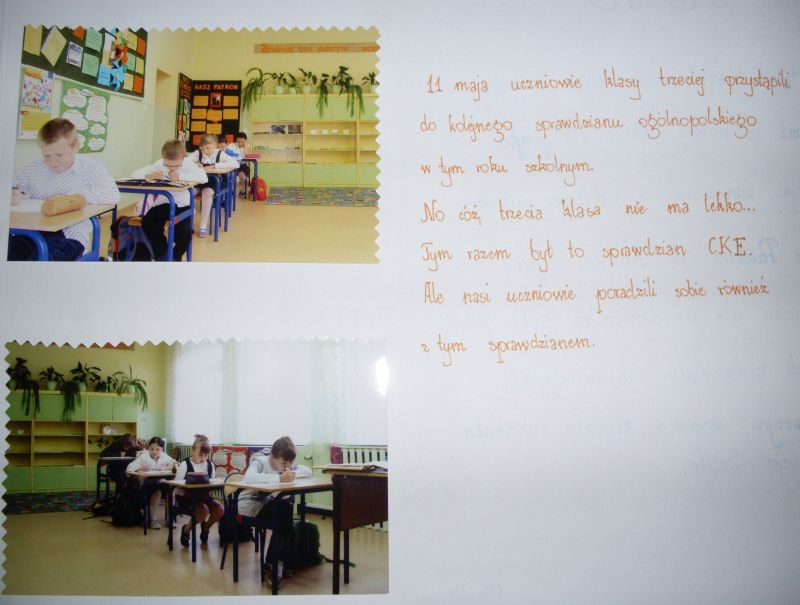 Próbuję być dobrym
NASZ PATRON
11 maja uczniowie klasy trzeciej przystąpili
do kolejnego sprawdzianu ogólnopolskiego
w tym roku szkolnym.
No cóż, trzecia klasa nie ma lekko...
Tym razem był to sprawdzian CKE.
Ale nasi uczniowie poradzili sobie również
z tym sprawdzianem.